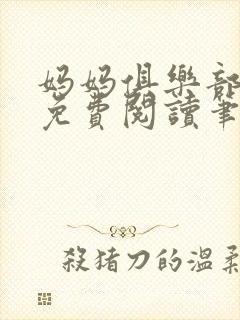 妈妈俱樂部
免費閱讀筆
殺猪刀的溫柔